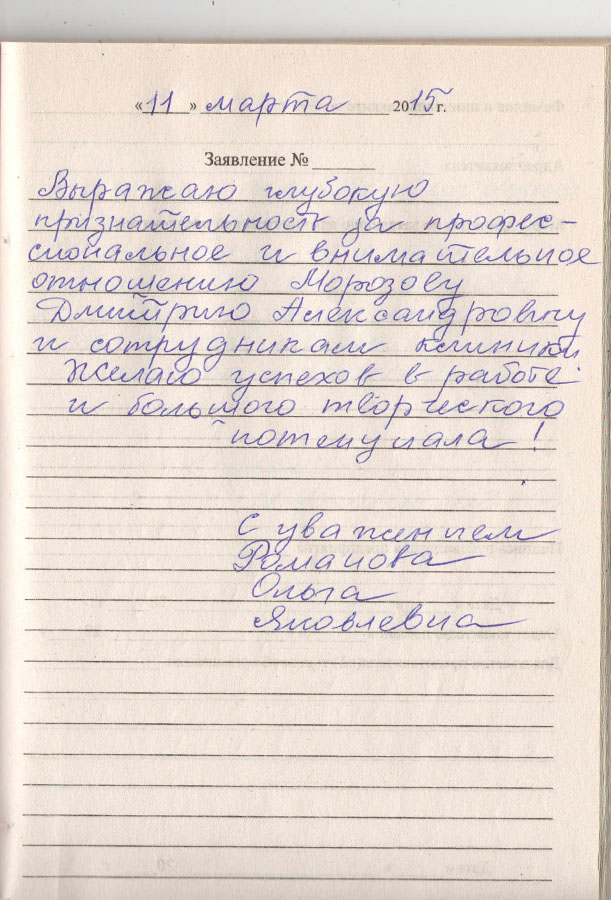 «11» марта 2015г.
Заявление №
Выражаю глубокую
признательность за профес-
сиональное и внимательное
отношению Морозову
Дмитрию Александровичу
и сотрудникам клиники.
Желаю успехов в работе
и большого творческого
потенциала!
С уважением
Романова
Ольга
Яковлевна